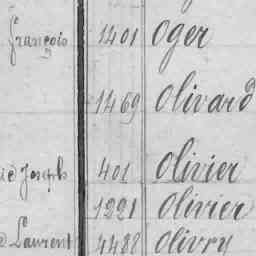 François 1401 Oger
1469 Olivard
Joseph 401 Olivier
1221 Olivier
Laurent 4488 Olivry